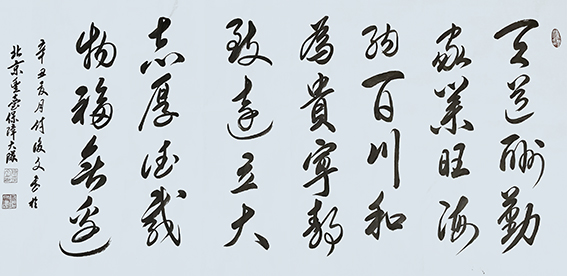 天道酬勤
家業旺海
納百川和
為貴寧静
致遠立大
志厚德載
物福無邊
辛丑夏月付俊文書於
北京保障大隊